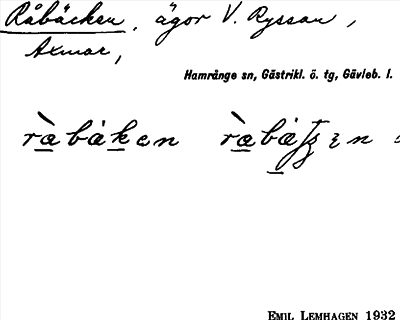 Råbäcken, ägor V. Ryssan,
Axmar,
Hamrånge sn, Gästrikl. ö. tg, Gävleb. l.
ràbȧken
EMIL LEMHAGEN 1932